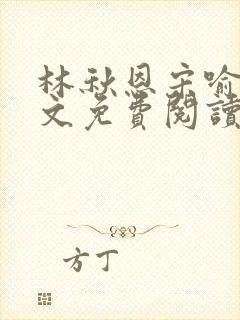 林秋恩宋喻
文免費閱讀
方丁